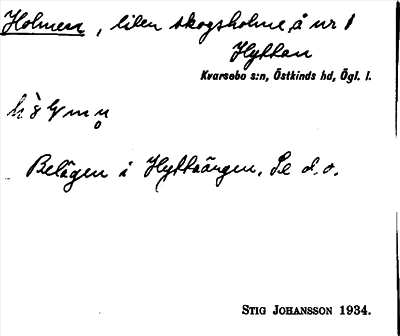 Holmen, liten skogsholme å nr 1
Hyttan
Kvarsebo s:n, Östkinds hd, Ögl. l.
Belägen i Hyttoängen. Se d.o.
Stig Johansson 1934.